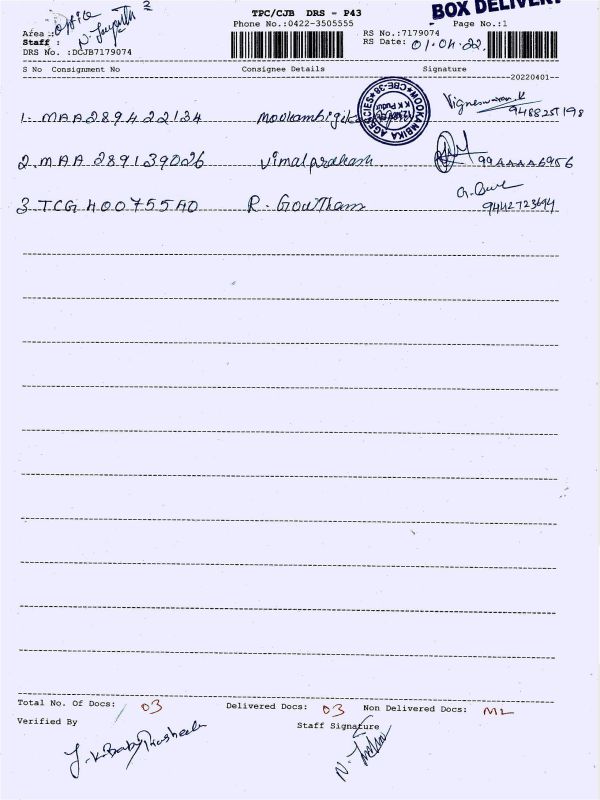 BOX DELIVERY
TPC/CJB DRS - P43
Phone No.:0422-3505555
Page No.:1
Area : office
Staff :
DRS No. :DCJB7179074
RS No.:7179074
RS Date: 01.04.22.
S No Consignment No Consignee Details Signature
20220401
1. MAA289422134 Mookambigika Vigneswaran.K
9488251198
MOOKAMBIKA AGENCIES CBE-38 K K Pudur
2. MAA 289139026 Vimalprakash.
3 TCG400755A0 R. Goutham
9442723694
Total No. Of Docs: 03 Delivered Docs: 03 Non Delivered Docs:
Verified By Staff Signature